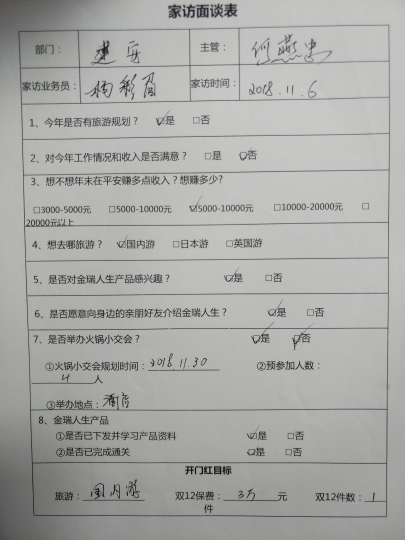 家访面谈表
部门： 建安 主管：
家访业务员： 杨彩 家访时间： 2018.11.6
1、今年是否有旅游规划？ ☑是 □否
2、对今年工作情况和收入是否满意？ □是 ☑否
3、想不想年末在平安赚多点收入？想赚多少?
□3000-5000元 □5000-10000元 ☑5000-10000元 □10000-20000元 □
20000元以上
4、想去哪旅游？ ☑国内游 □日本游 □英国游
5、是否对金瑞人生产品感兴趣？ ☑是 □否
6、是否愿意向身边的亲朋好友介绍金瑞人生？ ☑是 □否
7、是否举办火锅小交会？ ☑是 ☑否
①火锅小交会规划时间： 2018.11.30 ②预参加人数：
4 人
③举办地点：
8、金瑞人生产品
①是否已下发并学习产品资料 ☑是 □否
②是否已完成通关 ☑是 □否
开门红目标
旅游： 国内游 双12保费： 3万 元 双12件数： 1
件